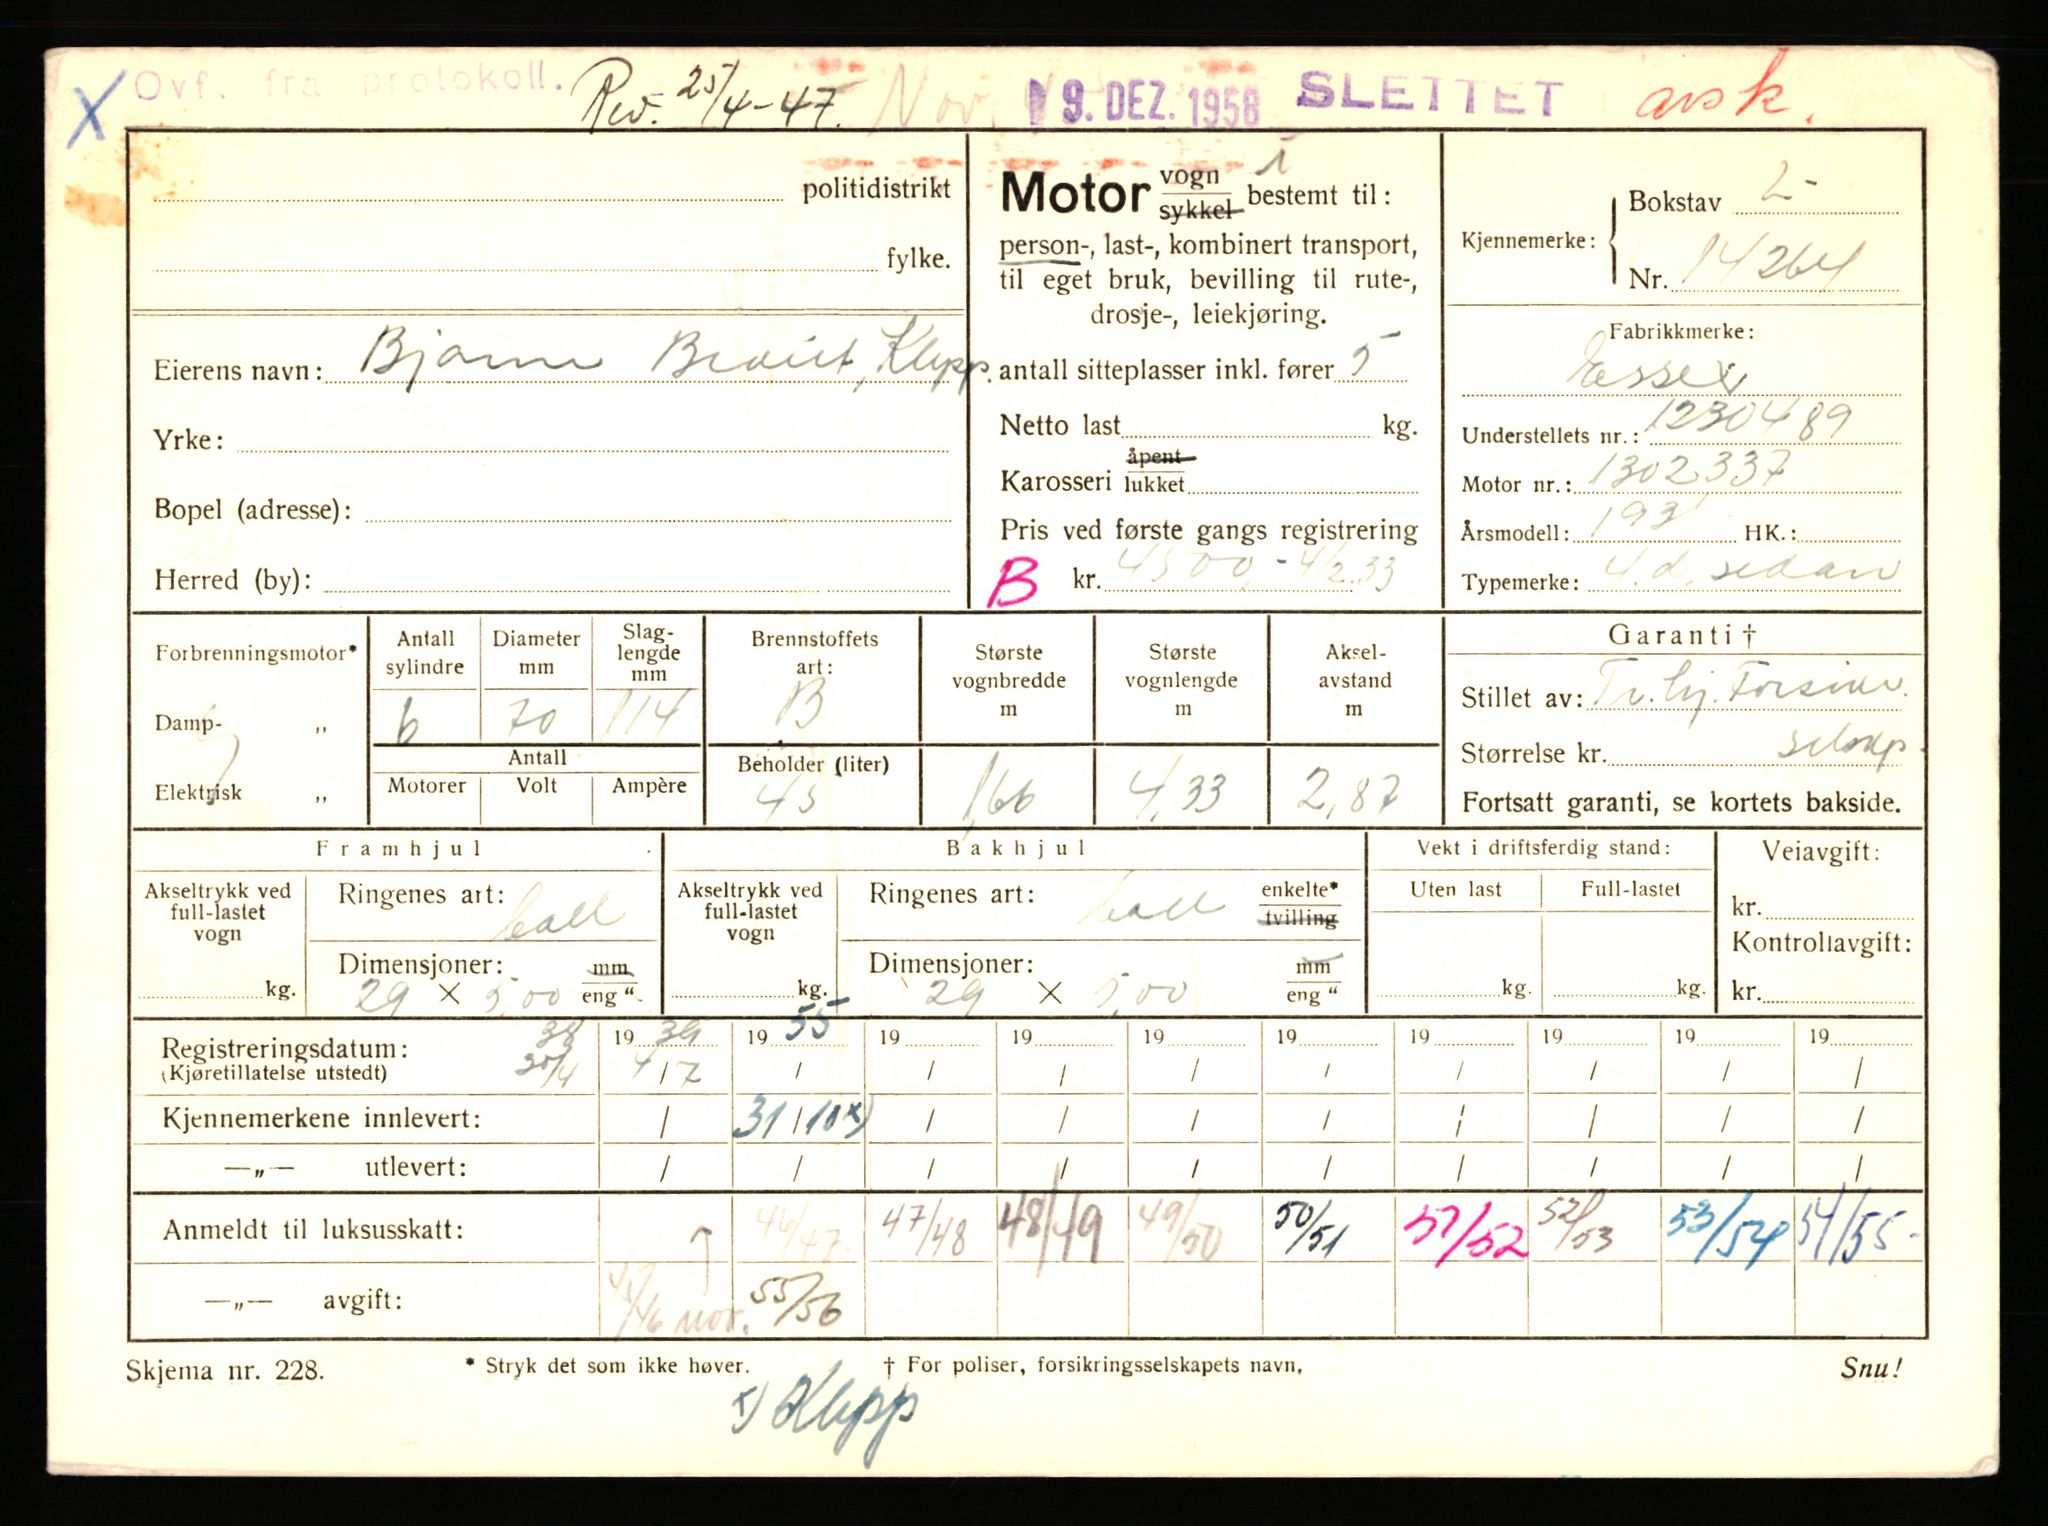 X Ovf. fra protokoll. Rev. 25/4-47. Nov. 19. DEZ. 1958 SLETTET avsk.
politidistrikt
fylke.
Eierens navn: Bjarne Klepp.
Yrke:
Bopel (adresse):
Herred (by):
Motor vogn
sykkel bestemt til:
person-, last-, kombinert transport,
til eget bruk, bevilling til rute-,
drosje-, leiekjøring.
antall sitteplasser inkl. fører 5
Netto last kg.
Karosseri åpent
lukket
Pris ved første gangs registrering
B kr. 4500,- 4/2.33
Kjennemerke:
Bokstav L-
Nr. 14264
Fabrikkmerke:
Essex
Understellets nr.: 1230489
Motor nr.: 1302337
Årsmodell: 1931 HK.:
Typemerke: 4.d. sedan
Forbrenningsmotor*
Damp- „
Elektrisk „
Antall
sylindre
6
Diameter
mm
70
Slag-
lengde
mm
114
Antall
Motorer Volt Ampère
Brennstoffets
art:
B
Beholder (liter)
45
Største
vognbredde
m
1,66
Største
vognlengde
m
4,33
Aksel-
avstand
m
2,87
Garanti †
Stillet av: Tv.
Størrelse kr.
Fortsatt garanti, se kortets bakside.
Framhjul
Akseltrykk ved
full-lastet
vogn
kg.
Ringenes art: ball
Dimensjoner: mm
29 × 5,00 eng "
Bakhjul
Akseltrykk ved
full-lastet
vogn
kg.
Ringenes art: ball enkelte*
tvilling
Dimensjoner: mm
29 × 5,00 eng "
Vekt i driftsferdig stand:
Uten last Full-lastet
kg. kg.
Veiavgift:
kr.
Kontrollavgift:
kr.
38 19 39 19 55 19 19 19 19 19 19 19 19
Registreringsdatum:
(Kjøretillatelse utstedt) 4/7 / / / / / / / / /
Kjennemerkene innlevert: / 31/10 x) / / / / / / / /
—„— utlevert: / / / / / / / / / /
Anmeldt til luksusskatt: 46/47. 47/48 48/49 49/50 50/51 51/52 52/53 53/54 54/55-
—„— avgift: 45/46 nov. 55/56
Skjema nr. 228. * Stryk det som ikke høver. † For poliser, forsikringsselskapets navn, Snu!
x) Klepp